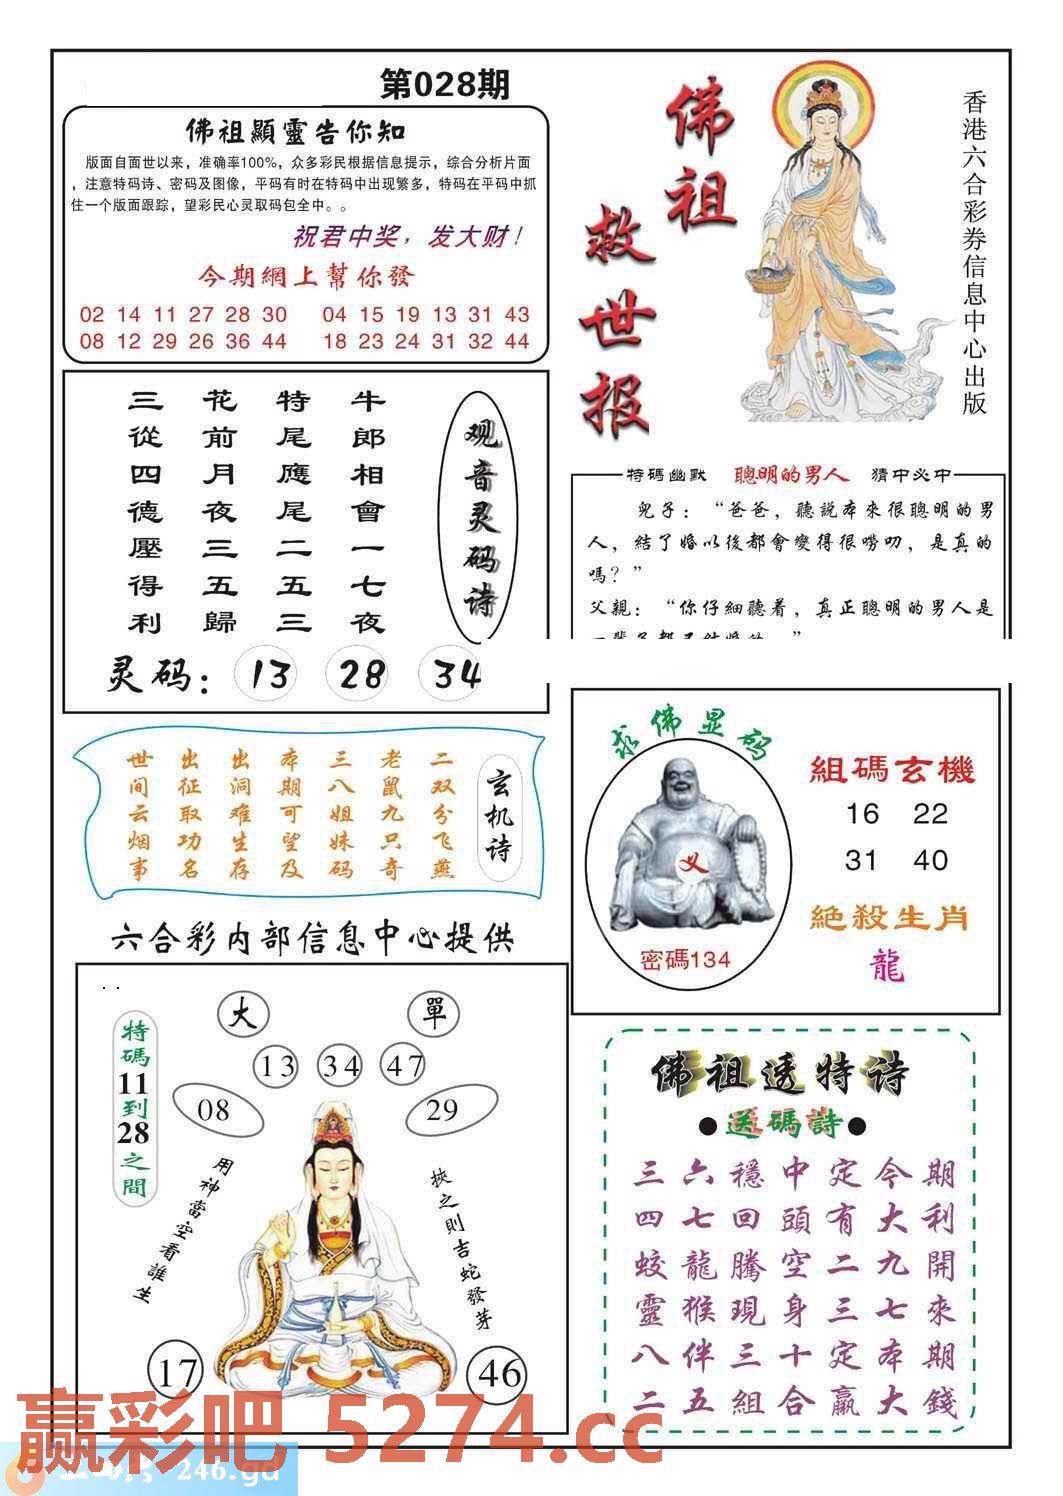 第028期
佛祖顯靈告你知
版面自面世以来，准确率100%，众多彩民根据信息提示，综合分析片面
，注意特码诗、密码及图像，平码有时在特码中出现繁多，特码在平码中抓
住一个版面跟踪，望彩民心灵取码包全中。。
祝君中奖，发大财！
今期網上幫你發
02 14 11 27 28 30 04 15 19 13 31 43
08 12 29 26 36 44 18 23 24 31 32 44
佛祖
救世报
香港六合彩券信息中心出版
观音灵码诗
牛郎相會一七夜
特尾應尾二五三
花前月夜三五歸
三從四德壓得利
灵码：13 28 34
特碼幽默 聰明的男人 猜中必中
兒子：“爸爸，聽說本來很聰明的男
人，結了婚以後都會變得很嘮叨，是真的
嗎？”
父親：“你仔細聽着，真正聰明的男人是
玄机诗
二双分飞燕
老鼠九只奇
三八姐妹码
本期可望及
出洞难生存
出征取功名
世间云烟事
求佛显码
密碼134
組碼玄機
16 22
31 40
絕殺生肖
龍
六合彩内部信息中心提供
特碼11到28之間
大 單
13 34 47
08 29
用神當空看誰生
挾之則吉蛇發芽
17 46
佛祖透特诗
●送碼詩●
三六穩中定今期
四七回頭有大利
蛟龍騰空二九開
靈猴現身三七來
八伴三十定本期
二五組合贏大錢
赢彩吧 5274.cc
246.gd